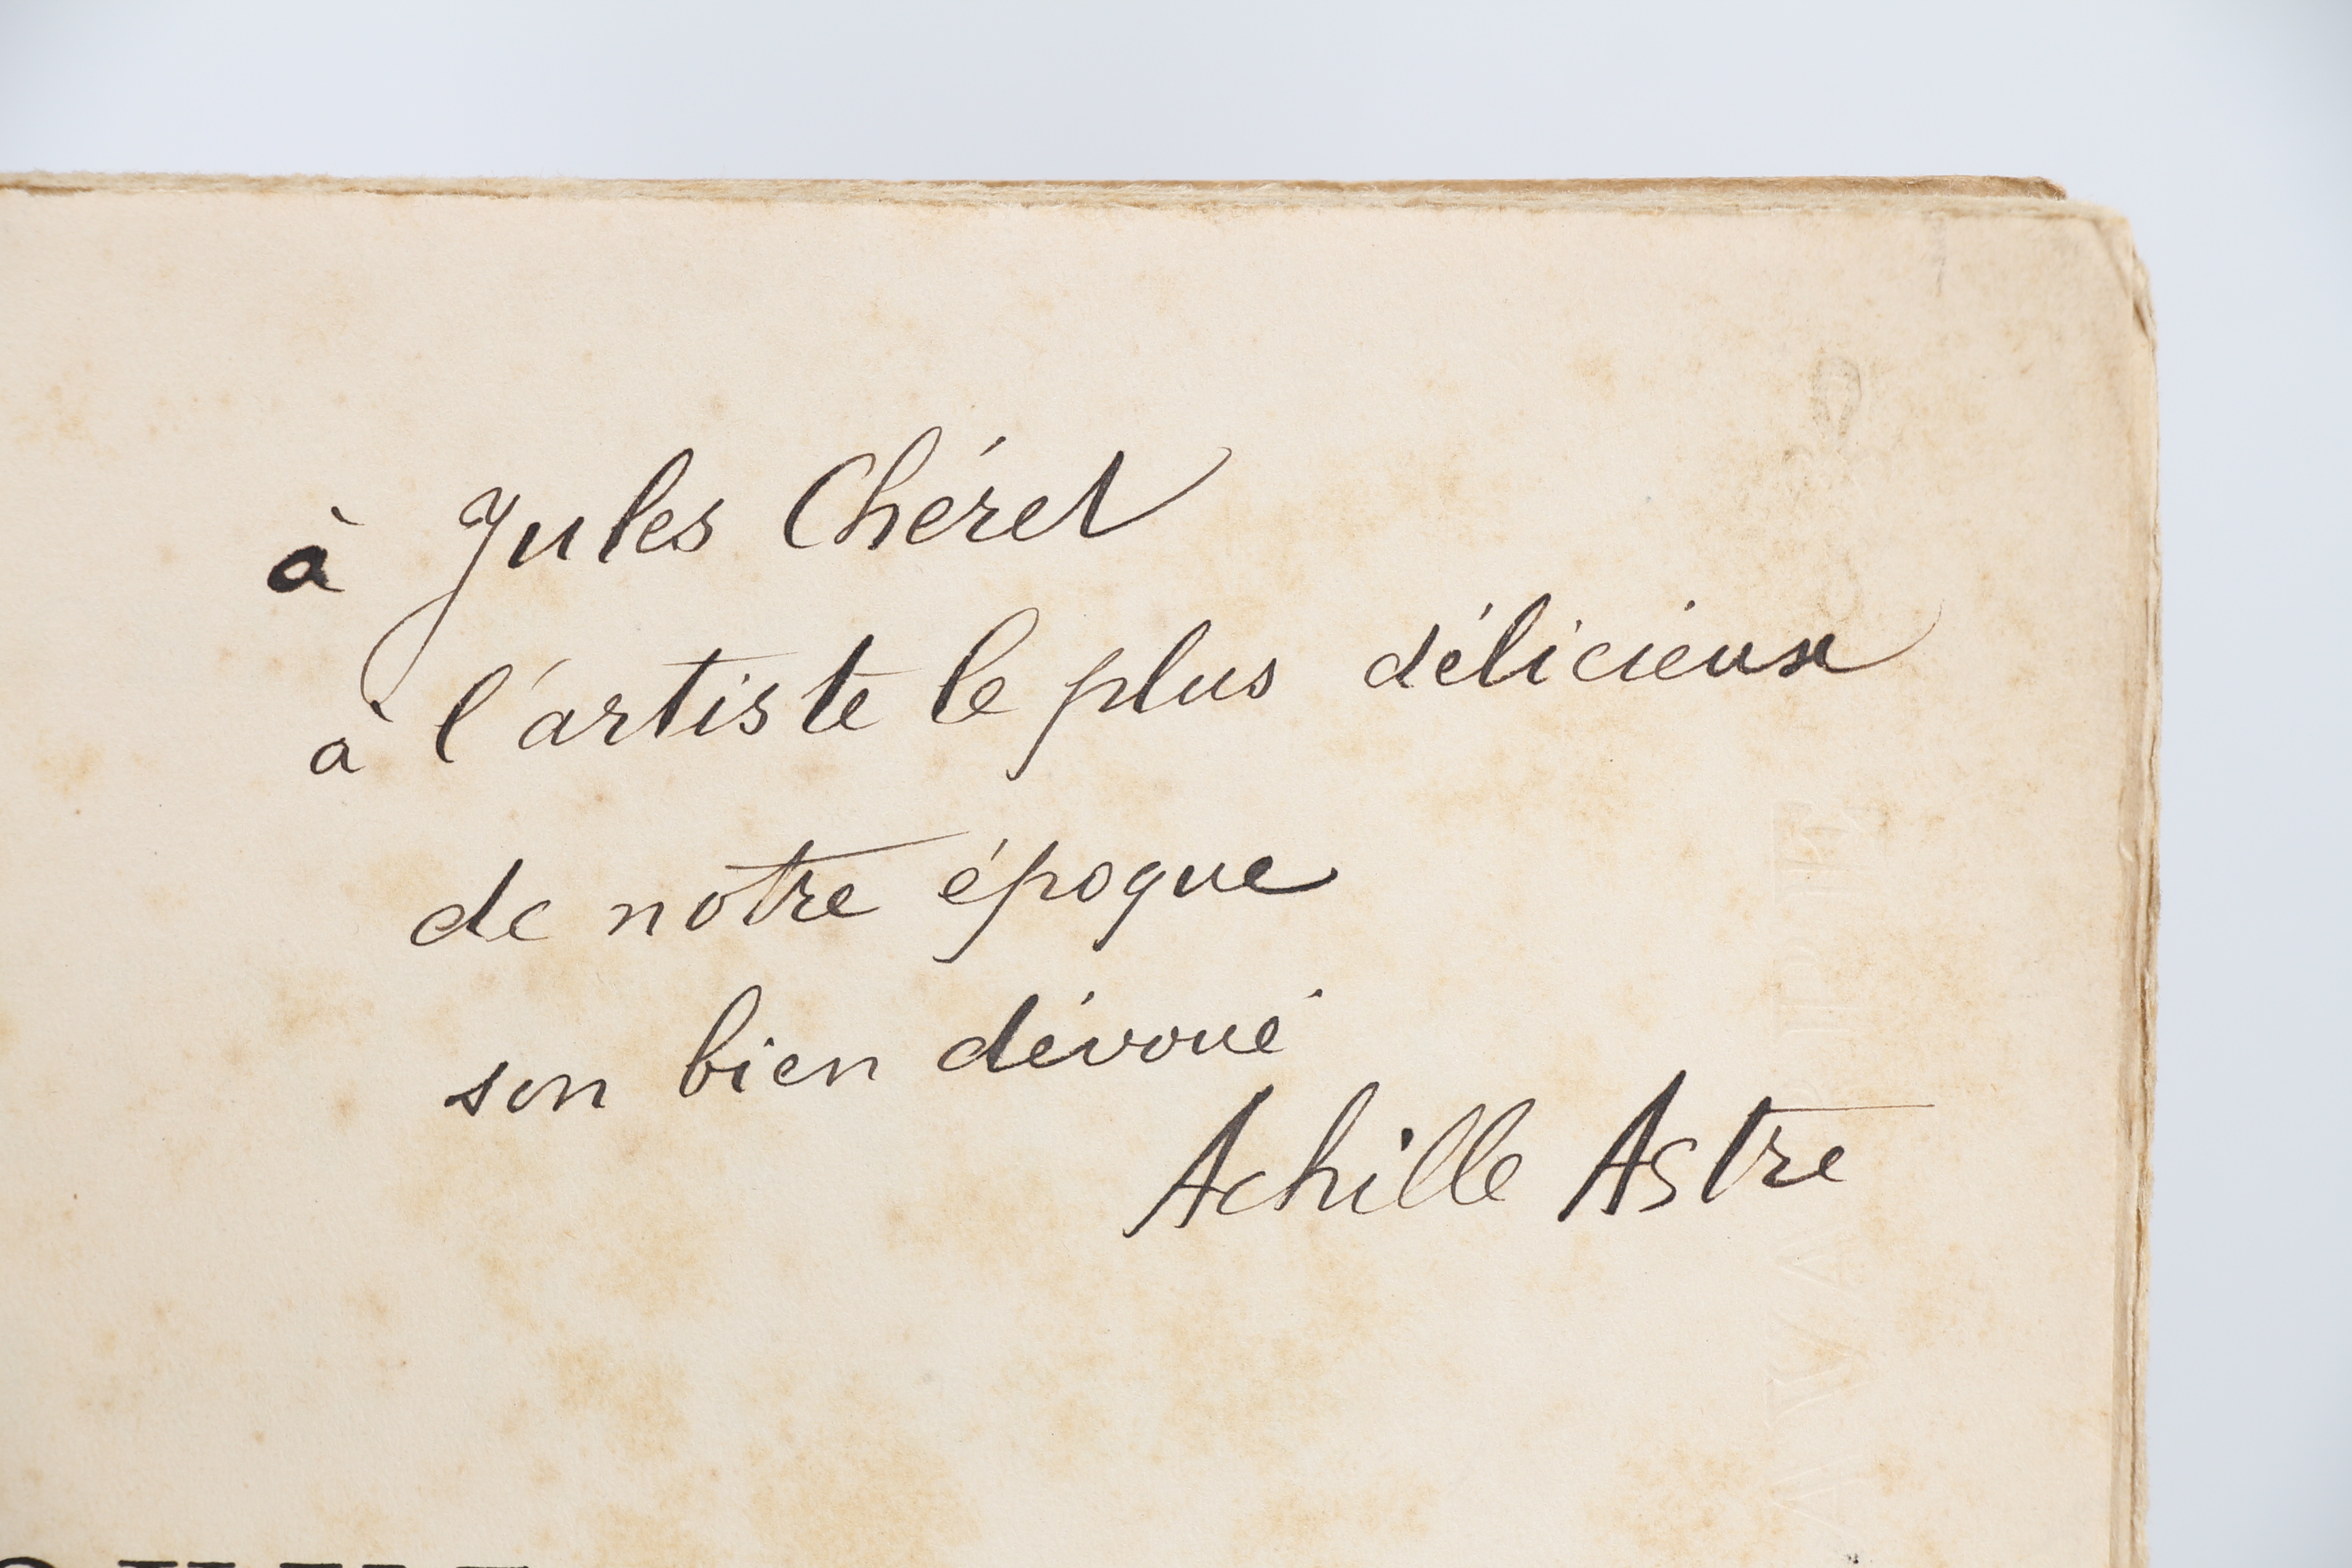 à Jules Chéret
à l'artiste le plus délicieux
de notre époque
son bien dévoué
Achille Astre